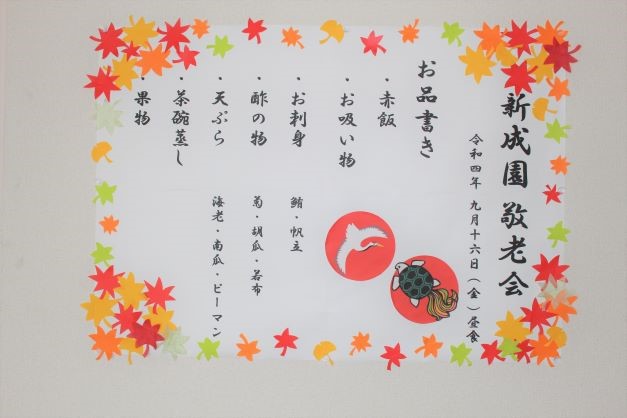 新成園 敬老会
令和四年 九月十六日(金)昼食
お品書き
・赤飯
・お吸い物
・お刺身 鮪・帆立
・酢の物 菊・胡瓜・若布
・天ぷら 海老・南瓜・ピーマン
・茶碗蒸し
・果物